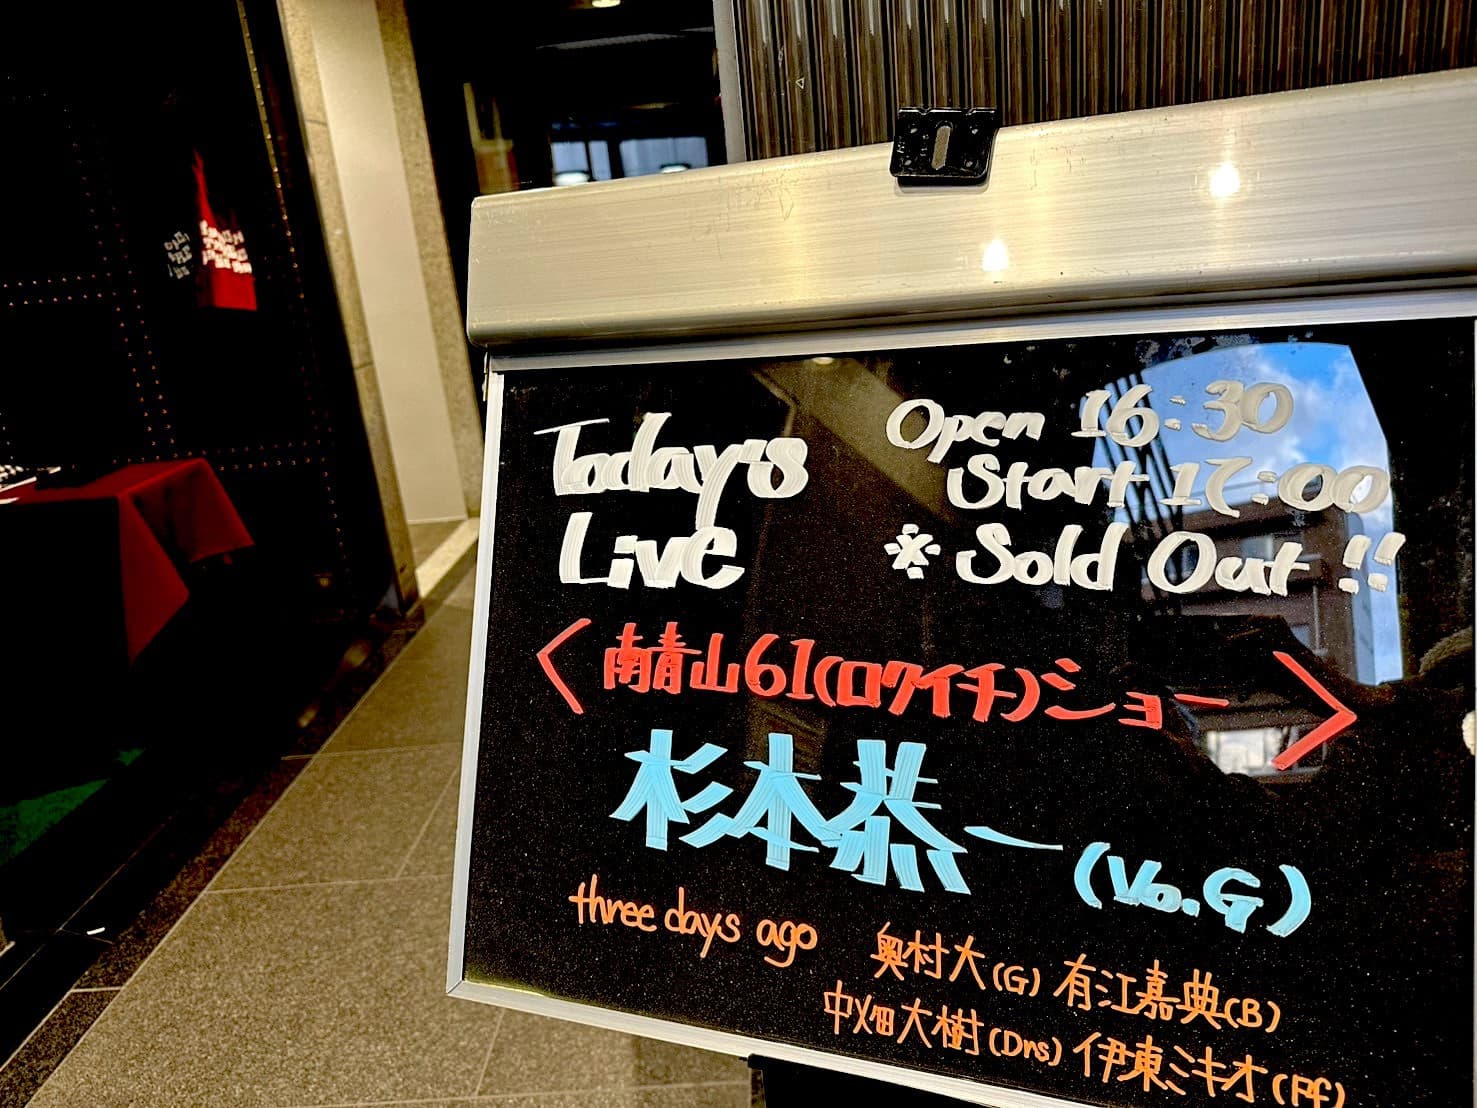 Today's Live
Open 16:30
Start 17:00
※ Sold Out !!
〈南青山61(ロクイチ)ショー〉
杉本恭一 (Vo.G)
three days ago
奥村大(G) 有江嘉典(B)
中畑大樹(Drs) 伊東ミキオ(Pf)